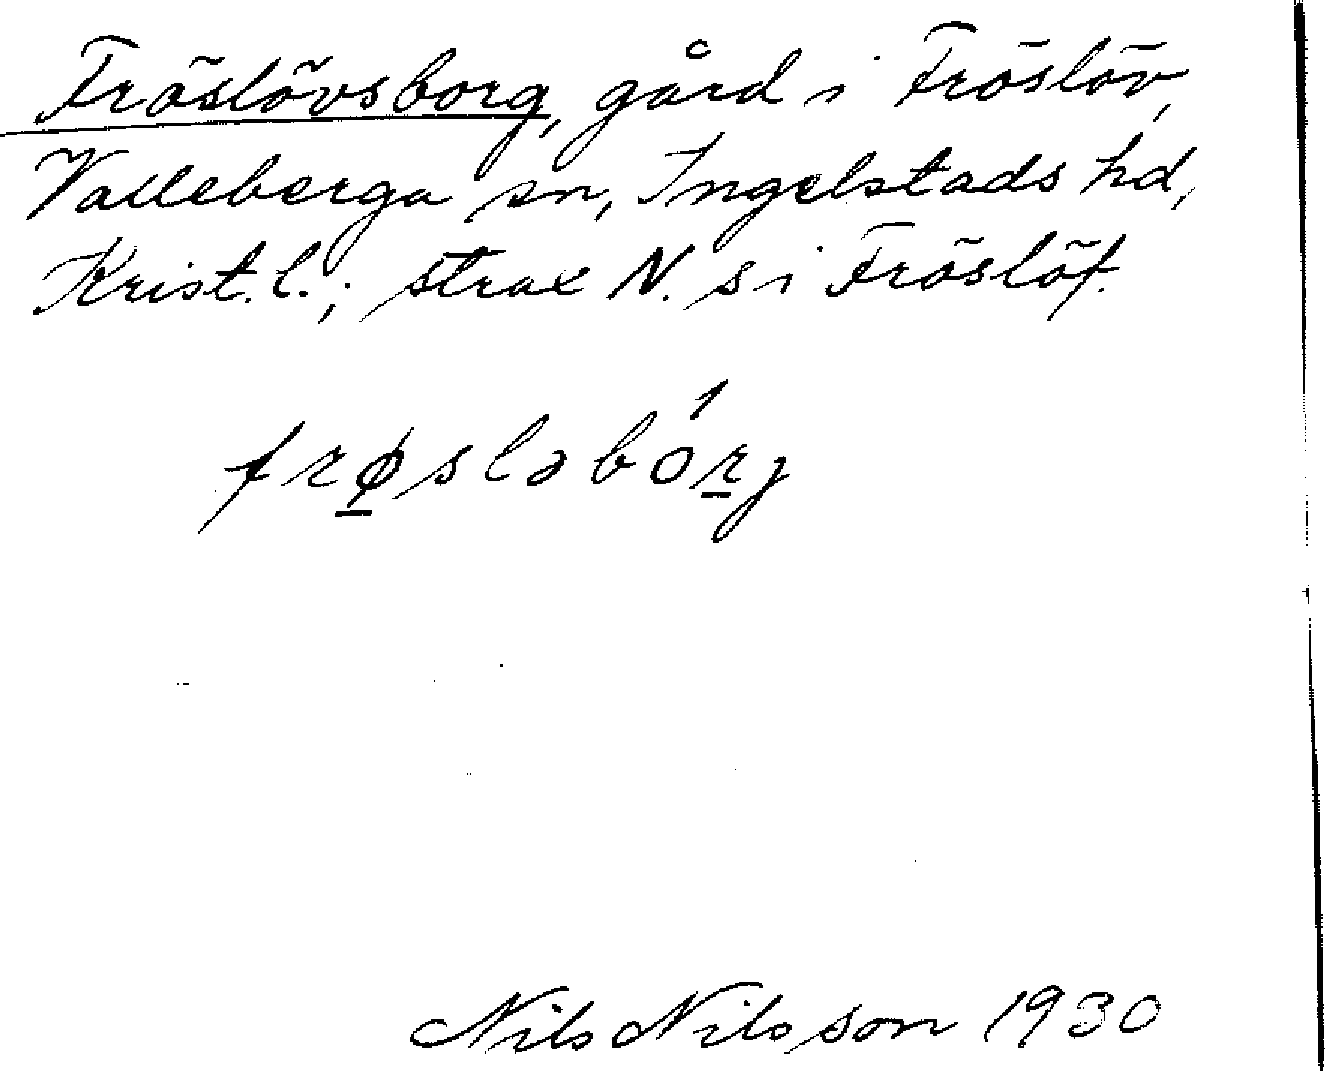 Fröslövsborg, gård i Fröslöv,
Valleberga sn, Ingelstads hd,
Krist. l.; strax N. s i Fröslöf.
frø̲sləbór̲j
Nils Nilsson 1930